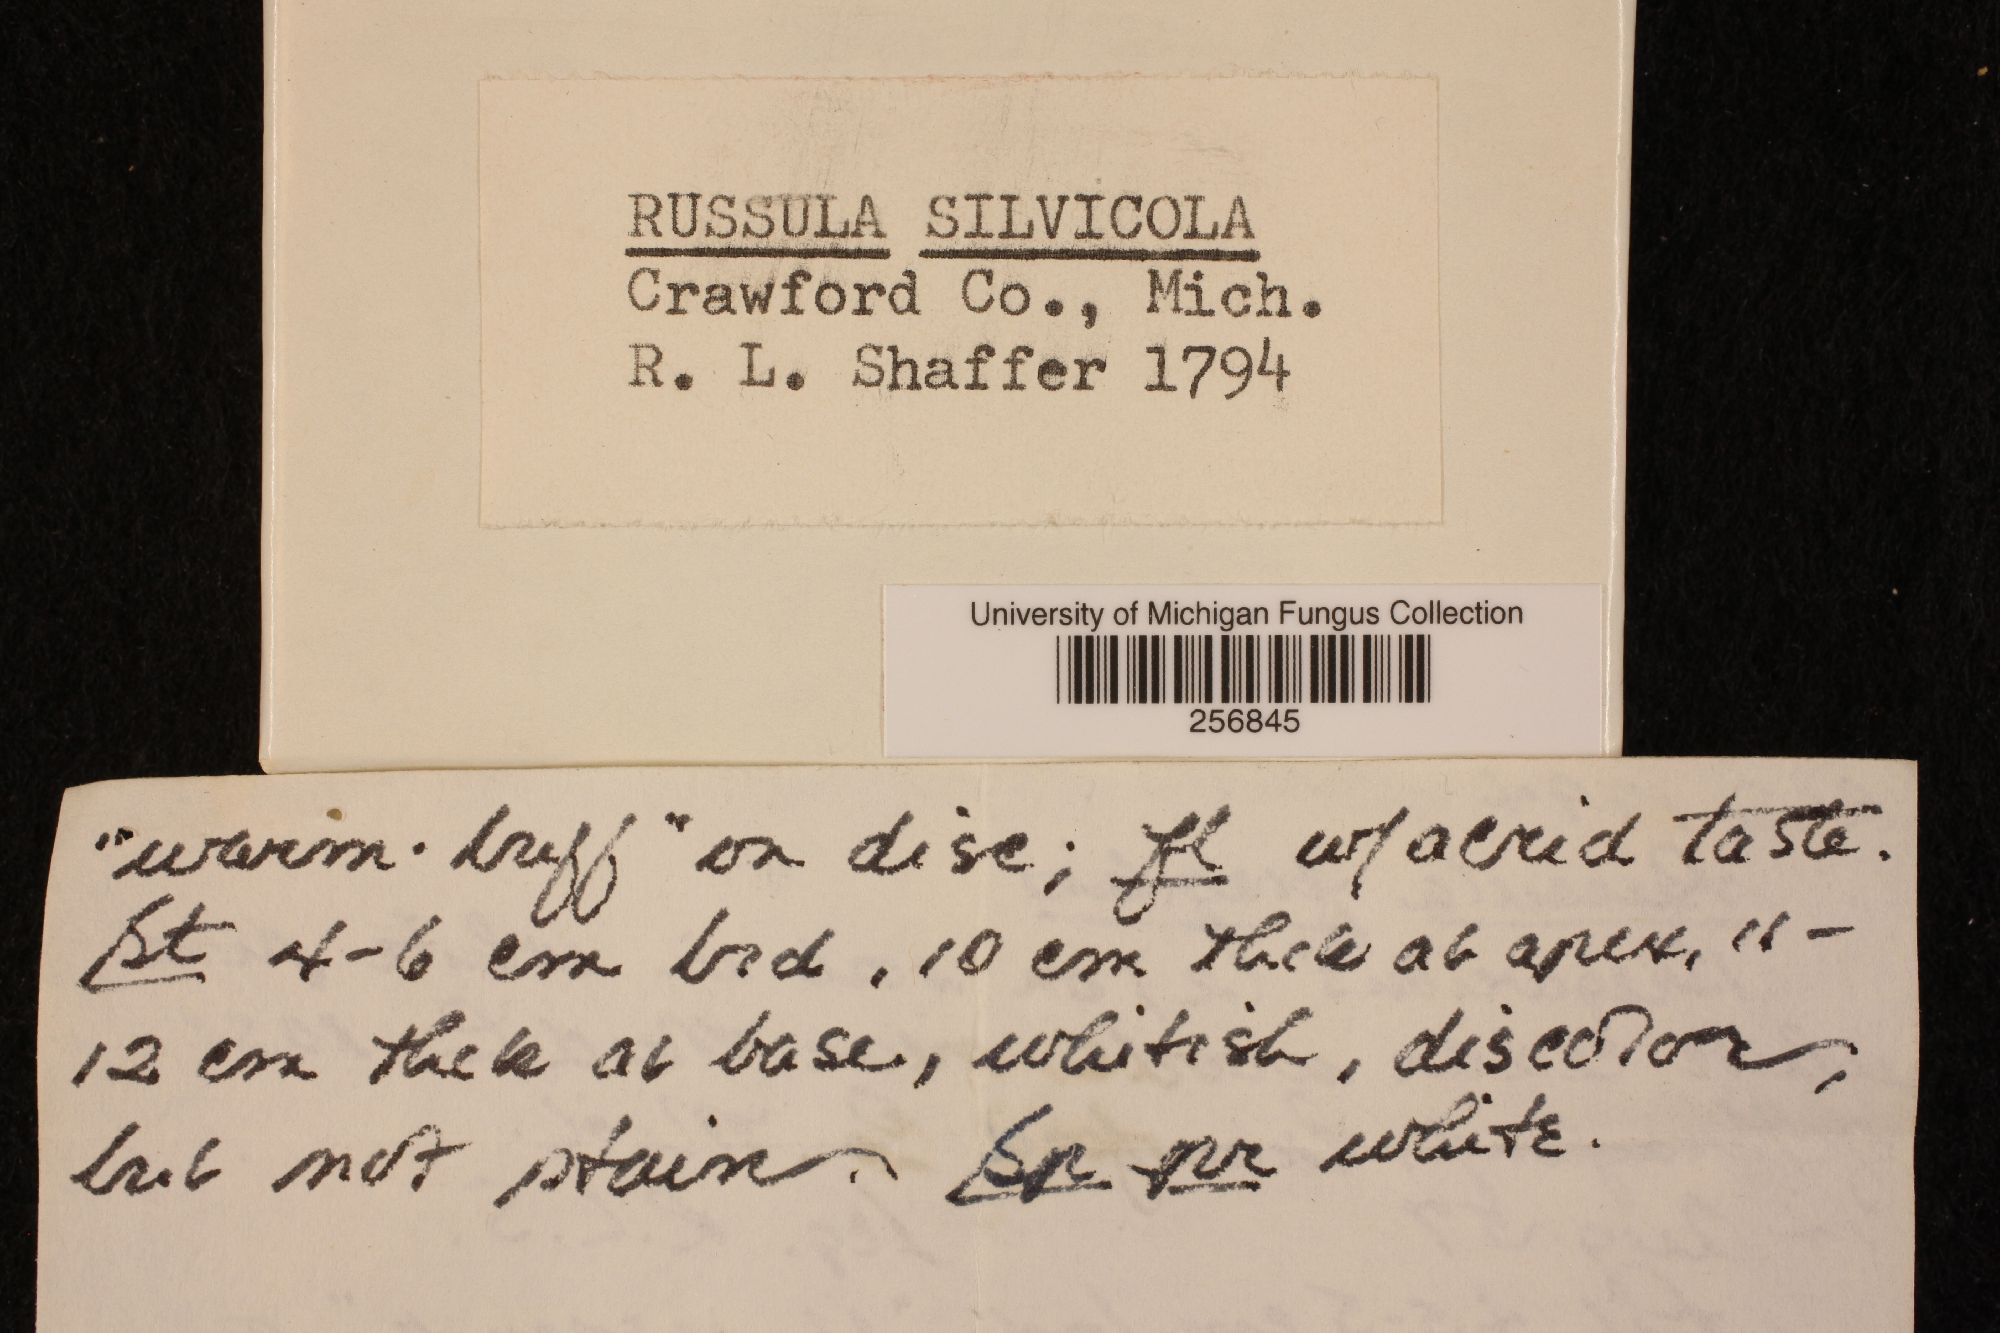 RUSSULA SILVICOLA
Crawford Co., Mich.
R. L. Shaffer 1794
University of Michigan Fungus Collection
256845
"warm-buff" on disc; fl w/acrid taste.
St 4-6 cm lrd, 10 cm thick at apex, 11-
12 cm thick at base, whitish, discolor,
but not stain. Sp pr white.